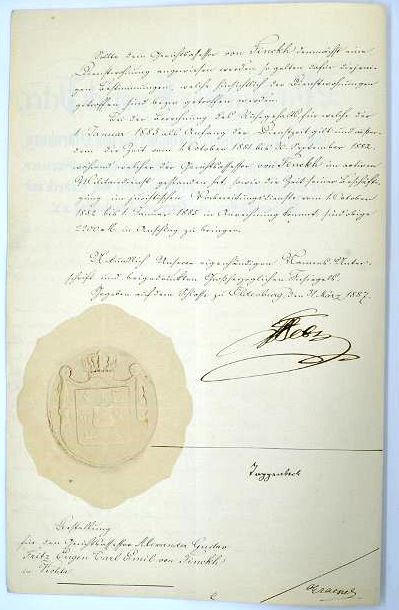 Sollte dem Gerichtsassessor von Finckh demnächst eine
Dienstwohnung angewiesen werden so gelten dafür diejeni-
gen Bestimmungen welche hinsichtlich der Dienstwohnungen
getroffen sind bezw. getroffen werden.
Bei der Berechnung des Ruhegehalts für welche der
1. Januar 1885 als Anfang der Dienstzeit gilt und außer-
dem die Zeit vom 1. October 1881 bis 30. September 1882,
während welcher der Gerichtsassessor von Finckh im activen
Militairdienst gestanden hat, sowie die Zeit seiner Beschäfti-
gung im juristischen Vorbereitungsdienste vom 1. October
1882 bis 1. Januar 1885 in Anrechnung kommt, sind obige
2200 M. in Anschlag zu bringen.
Urkundlich Unserer eigenhändigen Namens Unter-
schrift und beigedruckten Großherzoglichen Insiegels.
Gegeben auf dem Schlosse zu Oldenburg, den März 1887.
Peter
Tappenbeck
Bestallung
für den Gerichtsassessor Alexander Gustav
Fritz Eugen Carl Emil von Finckh
in Vechta